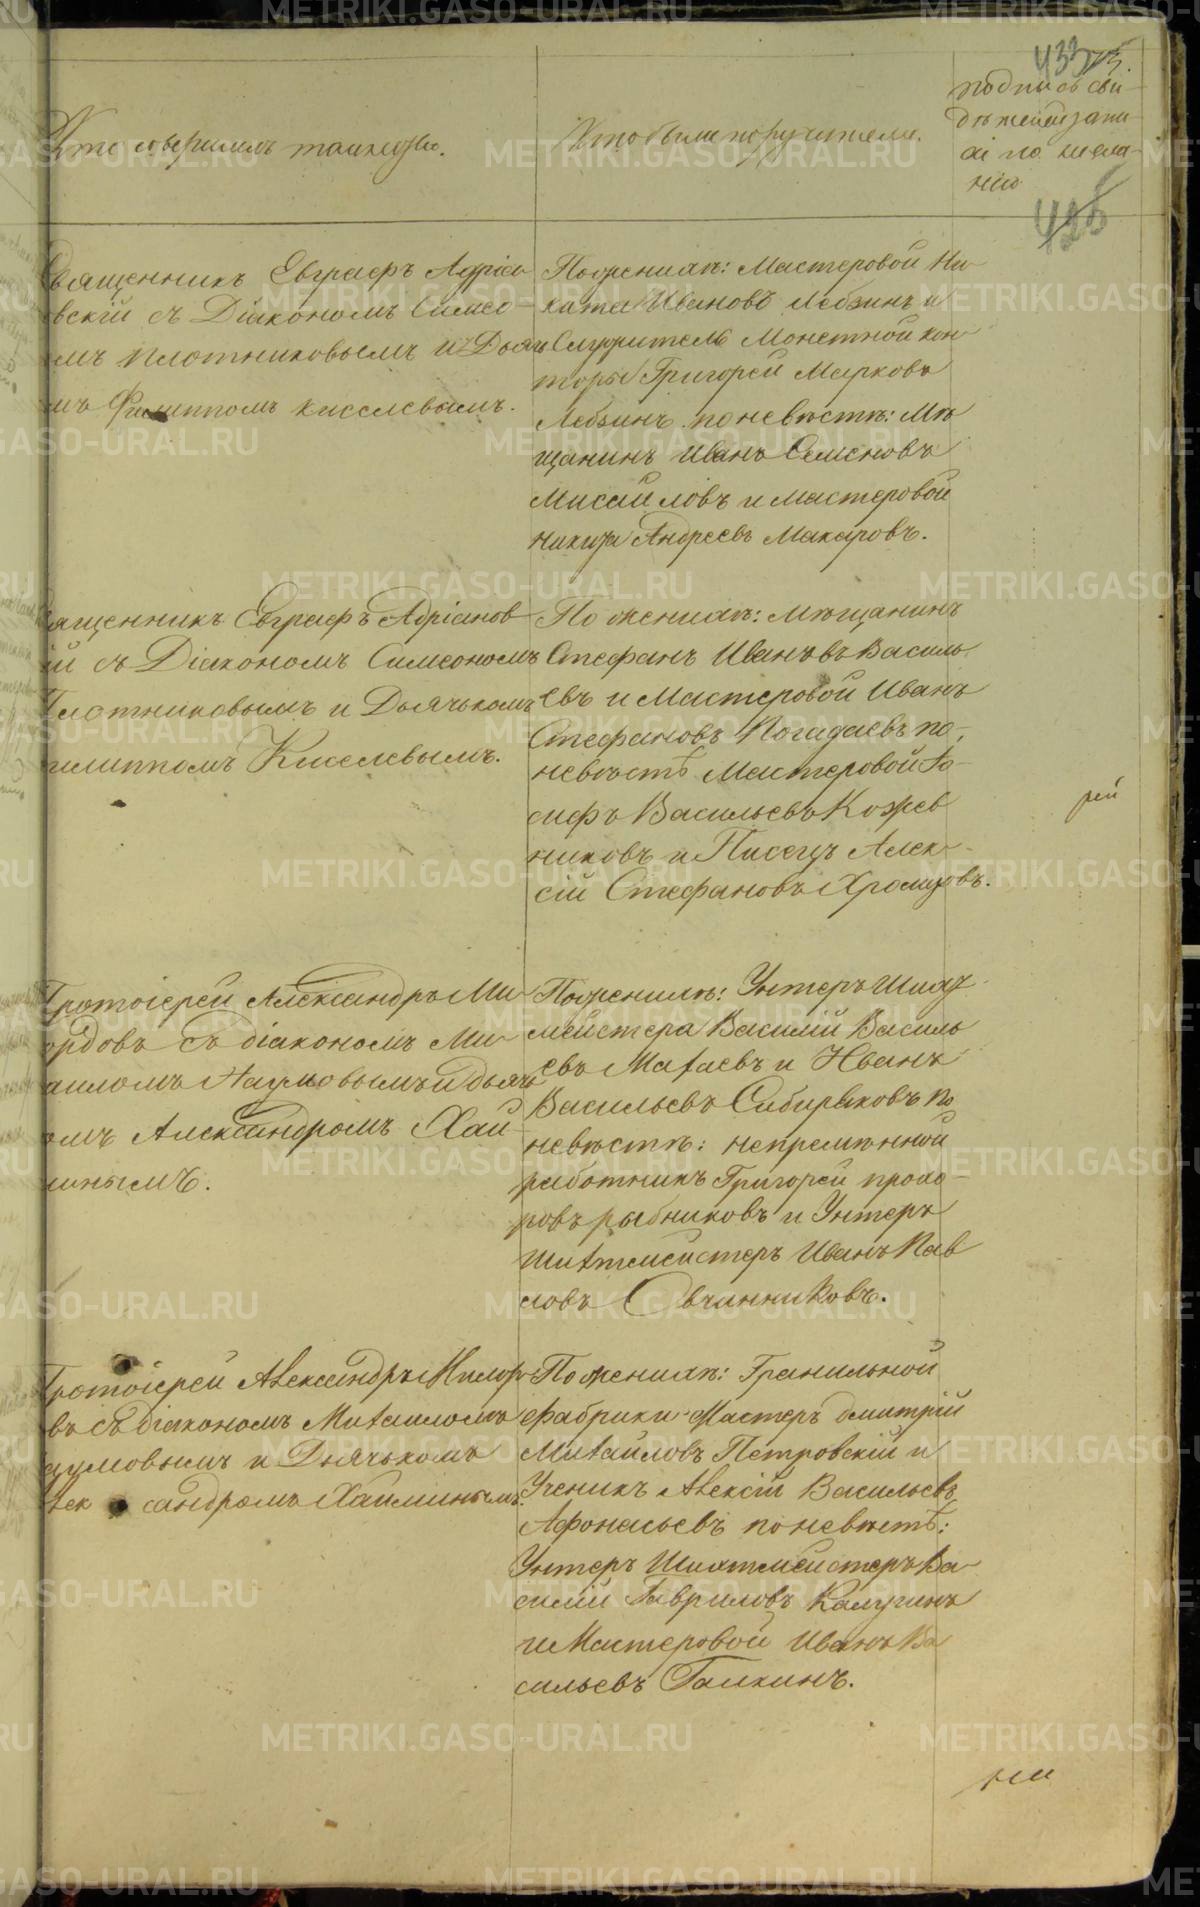 433
Кто совершилъ таинство.
Кто были поручители.
подпись сви-
дѣтелей записи
по жела-
нію
Священникъ Евграфъ Адріано
вскій съ Діакономъ Симео-
омъ Плотниковымъ и Дьячь
мъ Филиппомъ Киселевымъ.
По женихѣ: Мастеровой Ни-
Ивановъ Лебзинъ и
Служитель Монетной кон
торы Григорей Марковъ
Лебзинъ по невѣстѣ: Мѣ
щанинъ Иванъ Семеновъ
Мисаиловъ и Мастеровой
Никита Андреевъ Макаровъ.
ященникъ Евграфъ Адріанов
ій съ Діакономъ Симеономъ
Плотниковымъ и Дьячькомъ
илиппомъ Киселевымъ.
По женихѣ: мѣщанинъ
Стефанъ Ивановъ Василь
евъ и Мастеровой Иванъ
Стефановъ Погадаевъ по
невѣстѣ Мастеровой Іо-
сифъ Васильевъ Кожев
никовъ и Писецъ Алек-
сій Стефановъ Хромцовъ.
Протоіерей Александръ Ми
ордовъ съ діакономъ Ми-
аиломъ Наумовымъ и дьячь
омъ Александромъ Хай
минымъ.
По женихѣ: Унтеръ Шихт
мейстера Василій Василь
евъ Махаевъ и Иванъ
Васильевъ Сибиряковъ по
невѣстѣ: непремѣнной
работникъ Григорей прохо-
ровъ рыбниковъ и Унтеръ
Шихтмейстеръ Иванъ Пав
ловъ Овчинниковъ.
Протоіерей Александръ Милор
въ съ діакономъ Михаиломъ
аумовымъ и Дьячькомъ
лек сандромъ Хайминымъ.
По женихѣ: Гранильной
фабрики Мастеръ дмитрій
Михайловъ Петровскій и
Ученикъ Алексій Васильевъ
Афонасьевъ по невѣстѣ:
Унтеръ Шихтмейстеръ Ва
силій Гавриловъ Калугинъ
и Мастеровой Иванъ Ва
сильевъ Галкинъ.
рей
METRIKI.GASO-URAL.RU